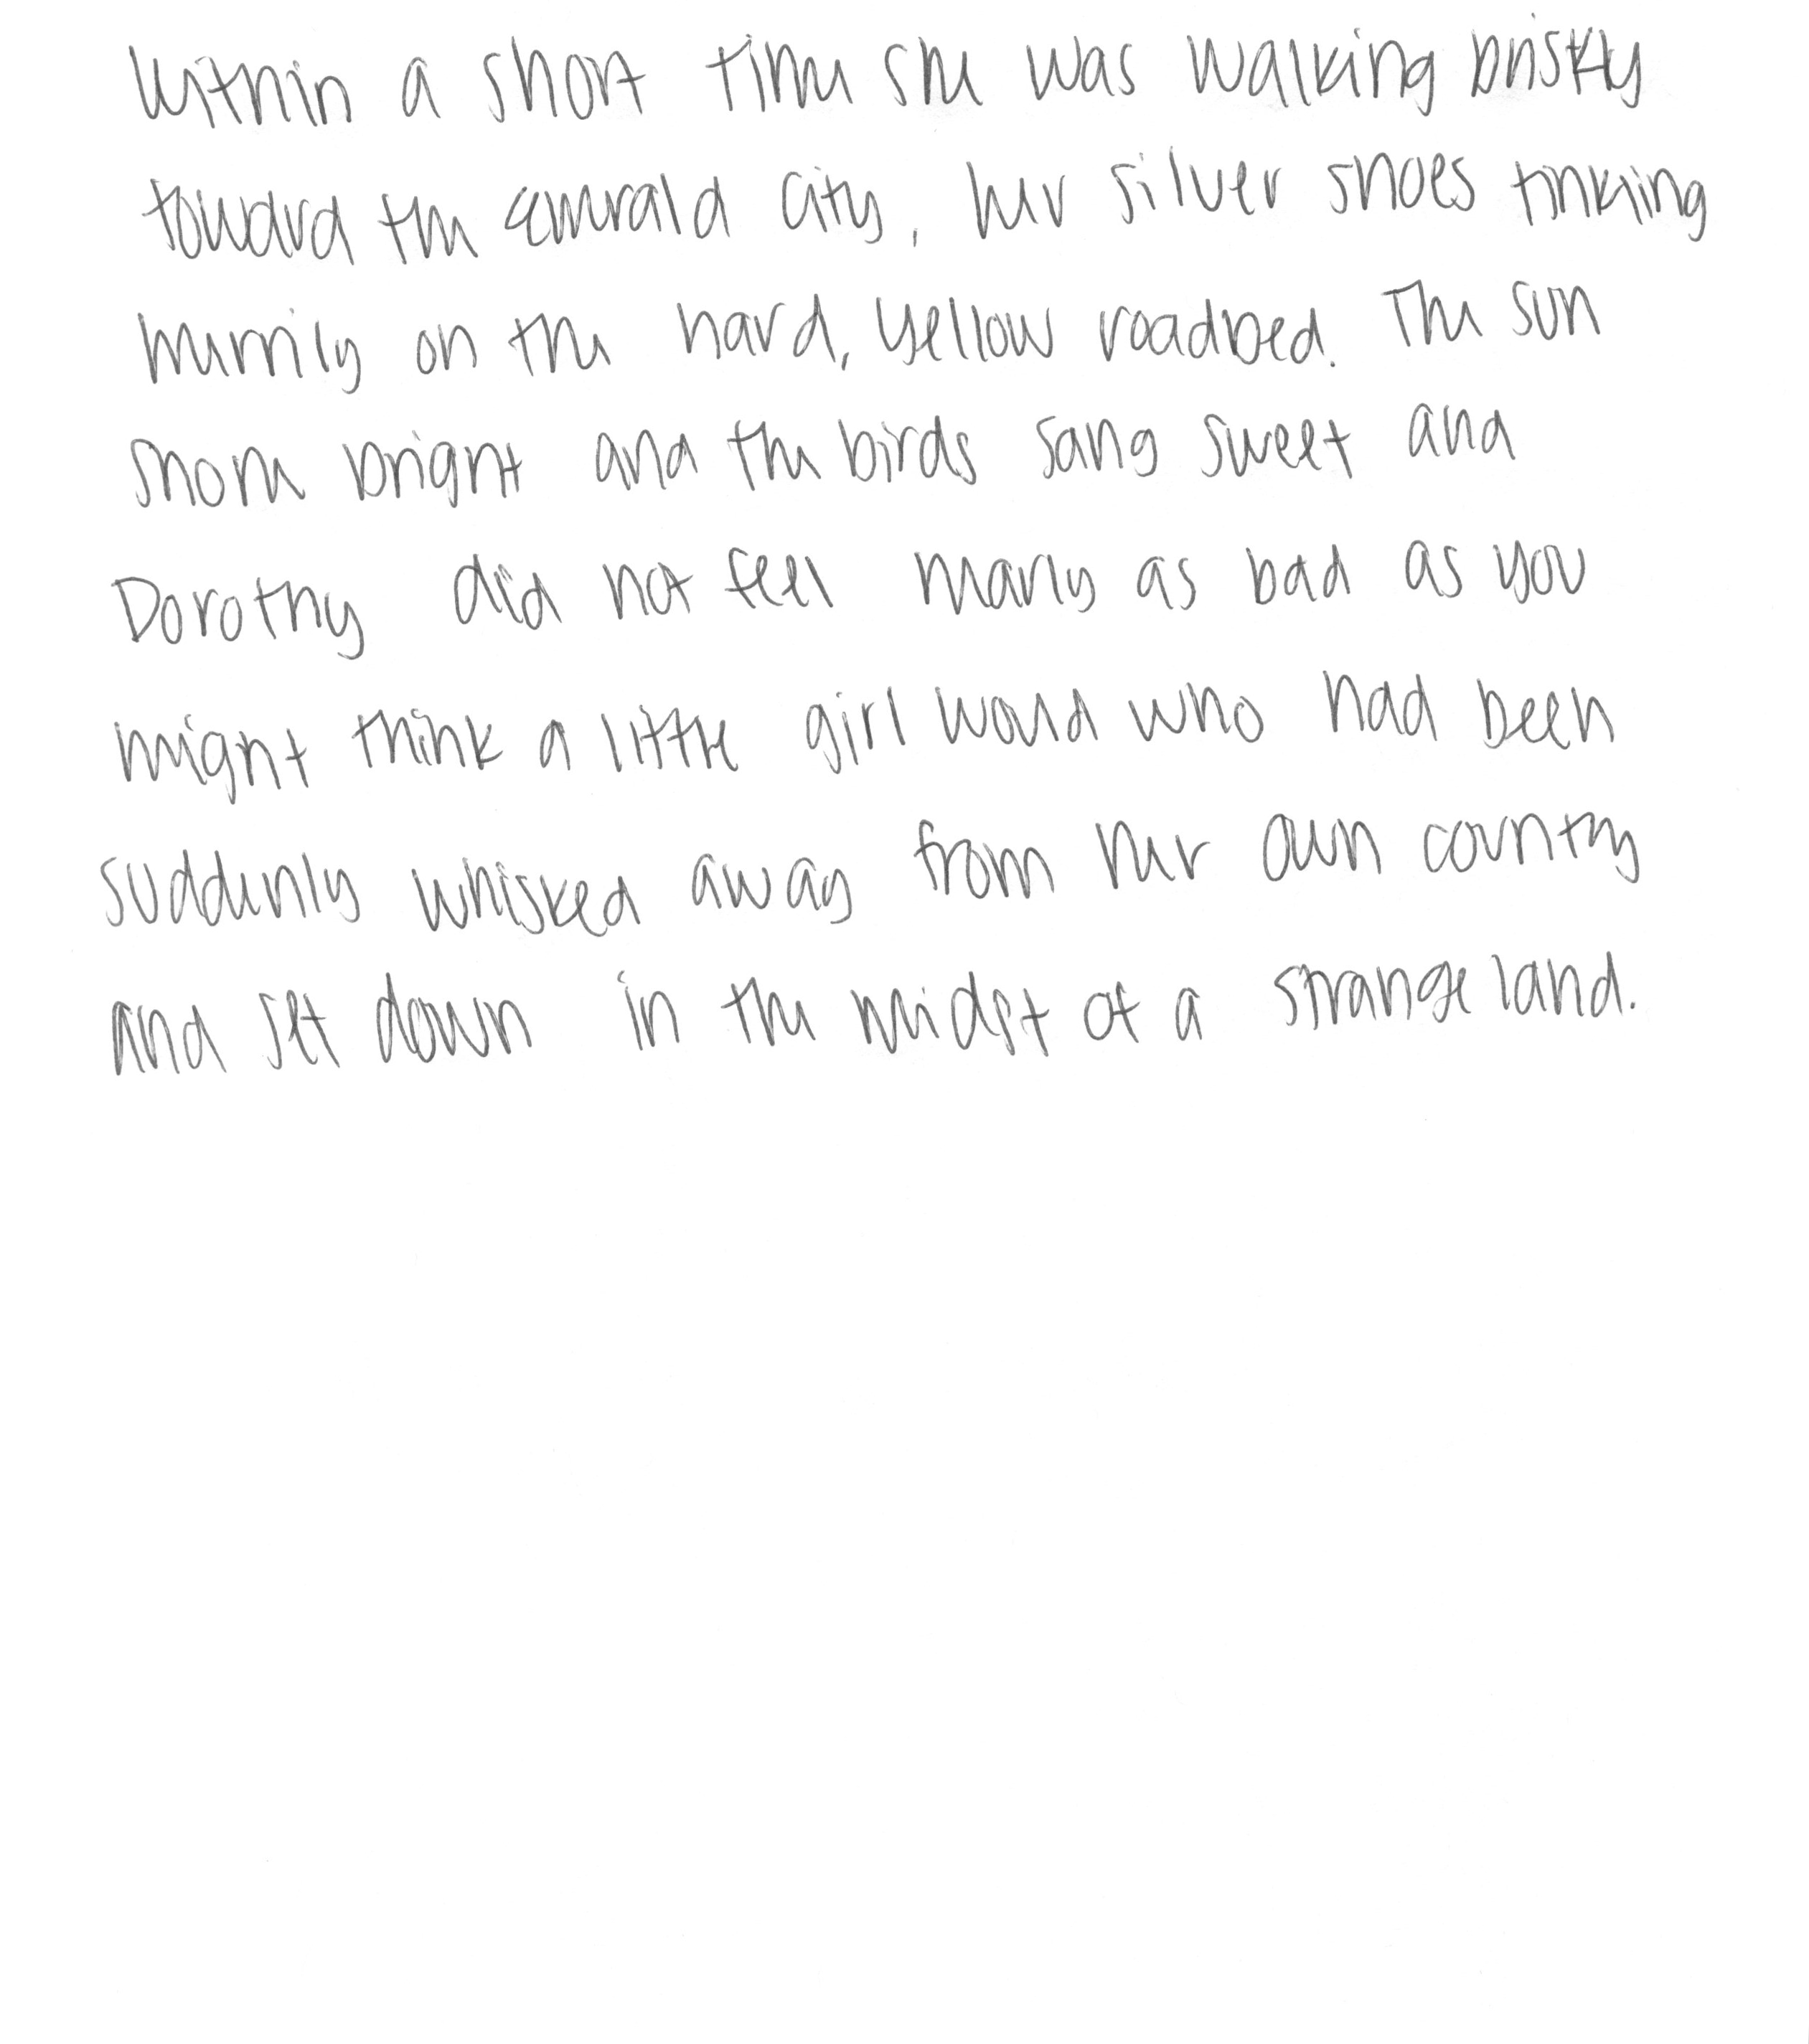 Within a short time she was walking briskly
toward the emerald city, her silver shoes tinkling
merrily on the hard, yellow roadbed. The sun
shone bright and the birds sang sweet and
Dorothy did not feel nearly as bad as you
might think a little girl would who had been
suddenly whisked away from her own county
and set down in the midst of a strange land.